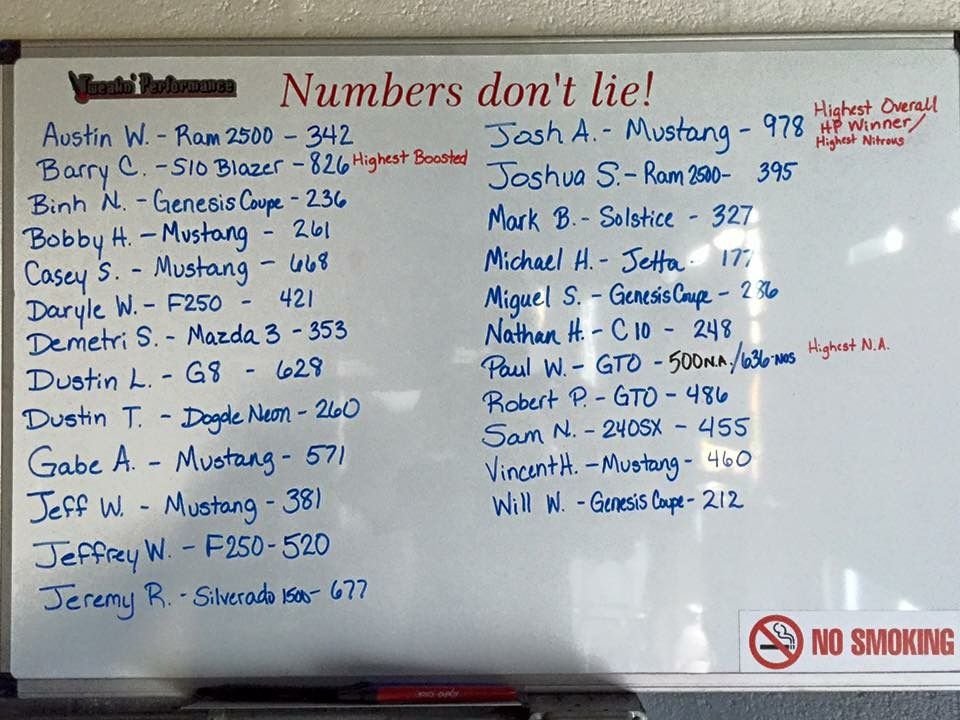 Tweakn' Performance
Numbers don't lie!
Austin W. - Ram 2500 - 342
Barry C. - S10 Blazer - 826 Highest Boosted
Binh N. - Genesis Coupe - 236
Bobby H. - Mustang - 261
Casey S. - Mustang - 668
Daryle W. - F250 - 421
Demetri S. - Mazda 3 - 353
Dustin L. - G8 - 628
Dustin T. - Dogde Neon - 260
Gabe A. - Mustang - 571
Jeff W. - Mustang - 381
Jeffrey W. - F250 - 520
Jeremy R. - Silverado 1500 - 677
Josh A. - Mustang - 978
Highest Overall
HP Winner/
Highest Nitrous
Joshua S. - Ram 2500 - 395
Mark B. - Solstice - 327
Michael H. - Jetta - 177
Miguel S. - Genesis Coupe - 286
Nathan H. - C10 - 248
Paul W. - GTO - 500 N.A. / 636-NOS Highest N.A.
Robert P. - GTO - 486
Sam N. - 240SX - 455
Vincent H. - Mustang - 460
Will W. - Genesis Coupe - 212
NO SMOKING